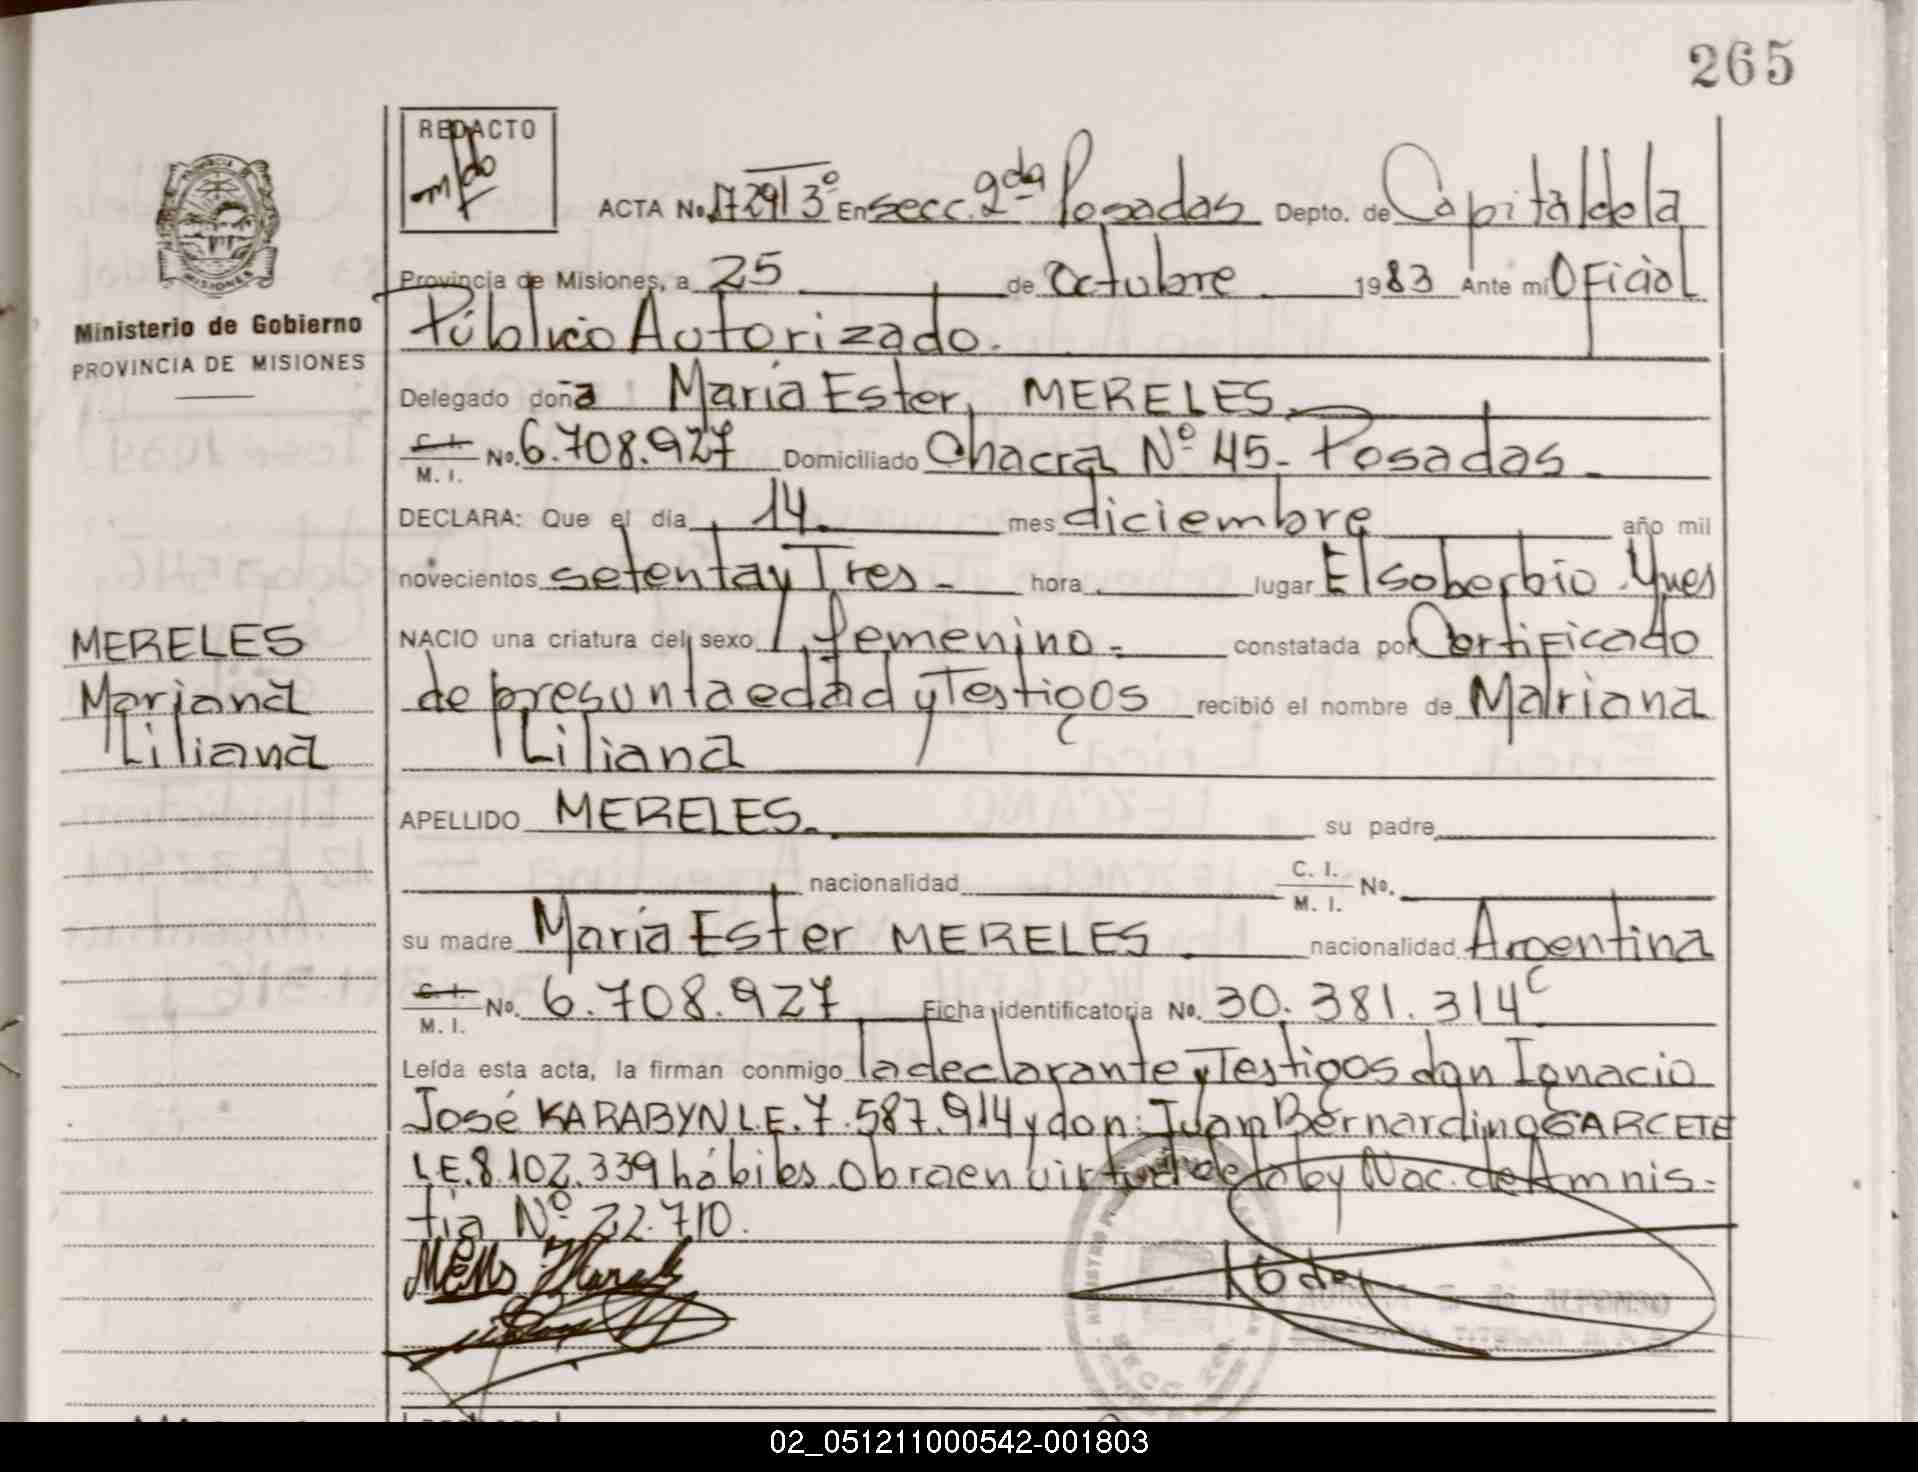 265
REDACTO
ACTA No. 1729 T 3º En secc. 2da Posadas Depto. de Capital de la
Provincia de Misiones, a 25 de Octubre 1983 Ante mi Oficial
Público Autorizado.
Ministerio de Gobierno
PROVINCIA DE MISIONES
Delegado doña María Ester, MERELES
C. I. M. I. No. 6.708.927 Domiciliado Chacra Nº 45- Posadas-
DECLARA: Que el día 14 mes diciembre año mil
novecientos setenta y Tres- hora lugar El soberbio Mnes
NACIO una criatura del sexo femenino- constatada por Certificado
de presunta edad y Testigos recibió el nombre de Mariana
Liliana
MERELES
Mariana
Liliana
APELLIDO MERELES. su padre
nacionalidad C. I. M. I. No.
su madre María Ester MERELES nacionalidad Argentina
C. I. M. I. No. 6.708.927 Ficha identificatoria No. 30.381.314
Leída esta acta, la firman conmigo la declarante y Testigos don Ignacio
José KARABYN L.E. 7.587.914 y don: Juan Bernardino GARCETE
L.E. 8.102.339 hábiles. Obra en virtud de la ley Nac. de Amnis-
tia Nº 22.710.
02_051211000542-001803